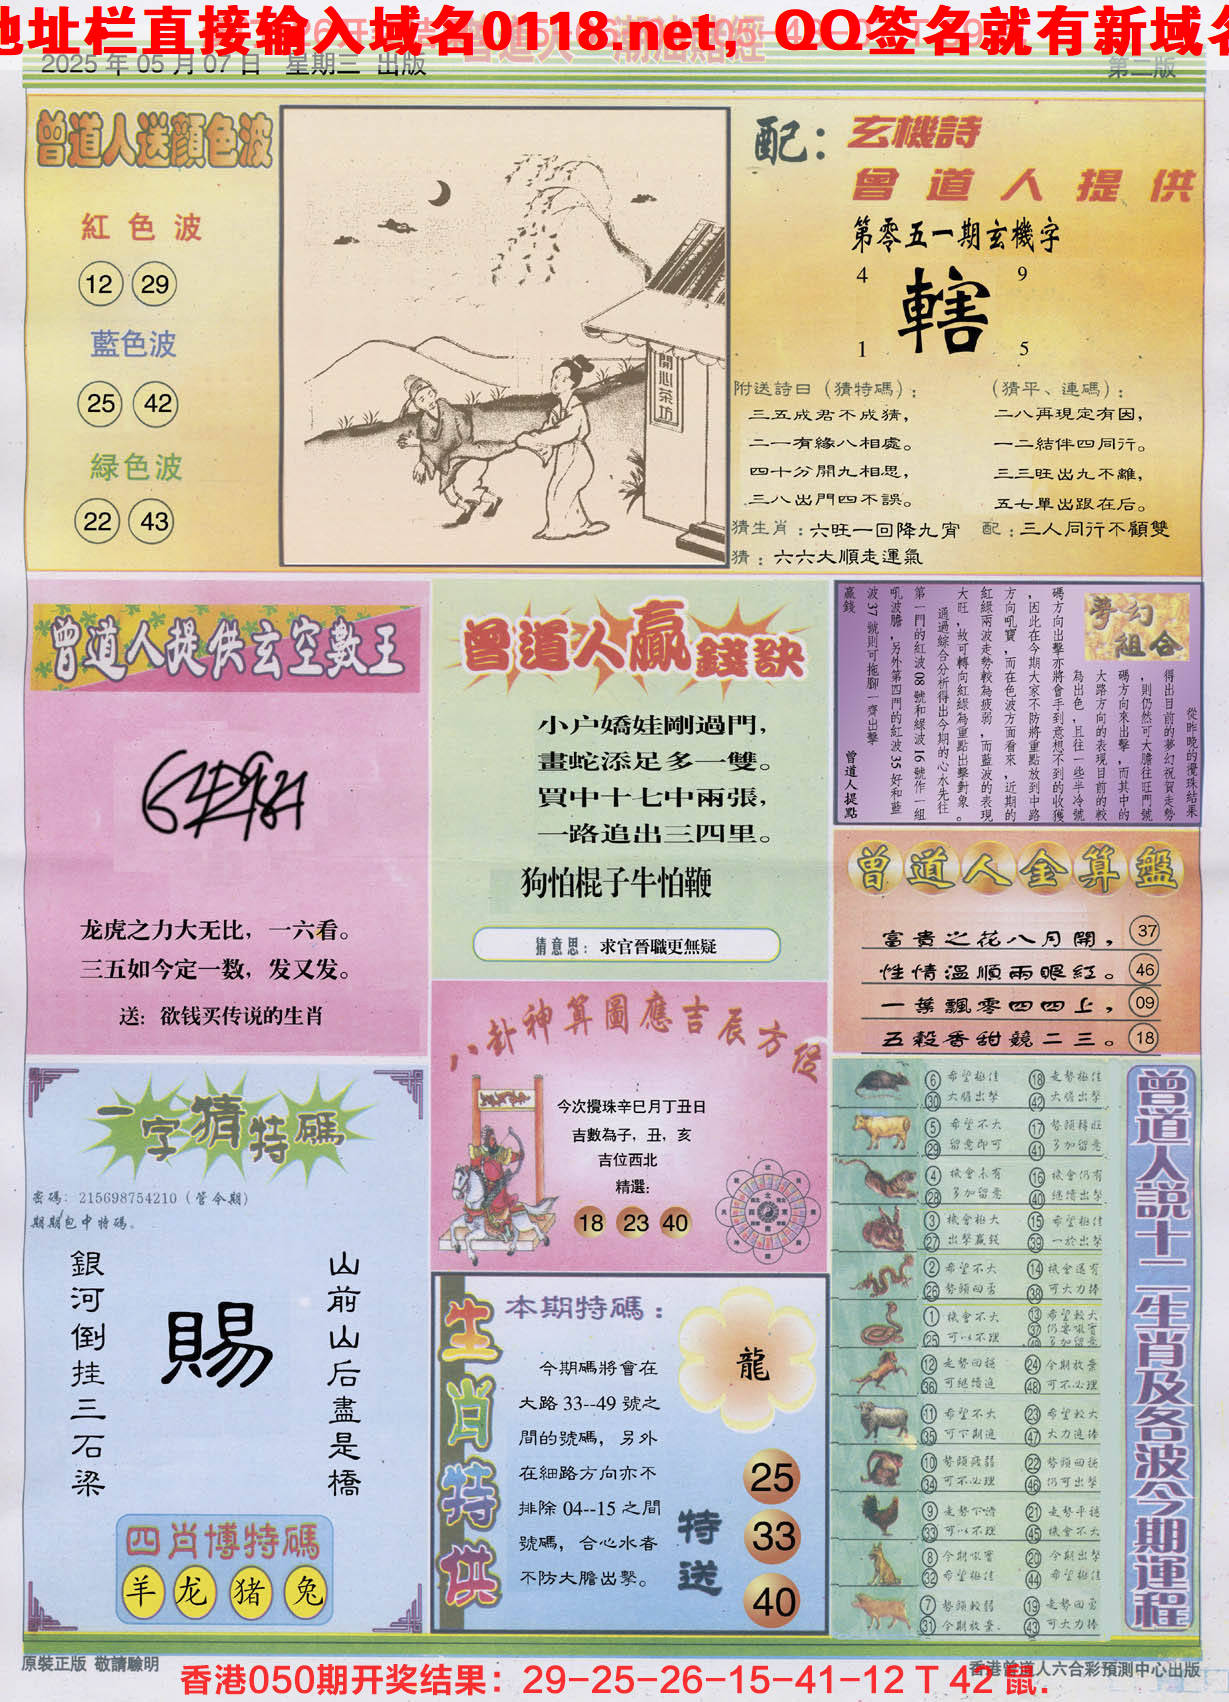 地址栏直接输入域名0118.net，QQ签名就有新域名
2025 年 05 月 07 日 星期三 出版
第二版
曾道人送顏色波
紅色波
12 29
藍色波
25 42
綠色波
22 43
開心茶坊
配：
玄機詩
曾道人提供
第零五一期玄機字
4 9
轄
1 5
附送詩曰（猜特碼）：
三五成君不成猜，
二一有緣八相處。
四十分開九相思，
三八出門四不誤。
（猜平、連碼）：
二八再現定有因，
一二結伴四同行。
三三旺出九不離，
五七單出跟在后。
猜生肖：六旺一回降九宵
配：三人同行不顧雙
猜：六六大順走運氣
曾道人提供玄空數王
龙虎之力大无比，一六看。
三五如今定一数，发又发。
送：欲钱买传说的生肖
曾道人贏錢訣
小户嬌娃剛過門，
畫蛇添足多一雙。
買中十七中兩張，
一路追出三四里。
狗怕棍子牛怕鞭
猜意思：求官晉職更無疑
夢幻組合
從昨晚的攪珠結果
得出目前的夢幻祝賀走勢
，則仍然可大膽往旺門號
碼方向來出擊，而其中的
大路方向的表現目前的較
為出色，且往一些半冷號
碼方向出擊亦將會手到意想不到的收獲
，因此在今期大家不防將重點放到中路
方向吼寶，而在色波方面看來，近期的
紅綠兩波走勢較為疲弱，而藍波的表現
大旺，故可轉向紅綠為重點出擊對象。
通過綜合分析得出今期的心水先往
第一門的紅波 08 號和綠波 16 號作一組
吼波膽，另外第四門的紅波 35 好和藍
波 37 號則可拖腳一齊出擊
贏錢
曾道人提點
曾道人金算盤
富貴之花八月開， 37
性情溫順兩眼紅。 46
一葉飄零四四上， 09
五穀香甜競二三。 18
八卦神算圖應吉辰方位
今次攪珠辛巳月丁丑日
吉數為子，丑，亥
吉位西北
精選：
18 23 40
一字猜特碼
密碼：215698754210（管令期）
期期包中特碼。
銀河倒挂三石梁
賜
山前山后盡是橋
四肖博特碼
羊 龙 猪 兔
生肖特供
本期特碼：
今期碼將會在
大路 33--49 號之
間的號碼，另外
在細路方向亦不
排除 04--15 之間
號碼，合心水者
不防大膽出擊。
龍
特送
25
33
40
曾道人説十二生肖及各波今期運程
6 希望極佳 18 走勢極佳
30 大膽出擊 42 大膽出擊
5 希望不大 17 勢頭轉旺
29 留意即可 41 多加留意
4 機會未有 16 機會仍有
28 多加留意 40 繼續出擊
3 機會極大 15 希望極佳
27 出擊贏錢 39 一於出擊
2 希望不大 14 機會還有
26 勢頭回落 38 可大力捧
1 機會不大 13 希望較大
25 可以不理
12 走勢回穩 24 今期放棄
36 可繼續追 48 可不必理
11 希望不大 23 希望較大
35 可下期追 47 大力追捧
10 勢頭疲弱 22 勢頭回穩
34 可不必理 46 仍可出擊
9 走勢下滑 21 走勢平穩
33 可以不理 45 機會不大
8 今期吼寶 20 今期出擊
32 希望極佳 44 希望極佳
7 勢頭較弱 19 走勢回落
31 今期放棄. 43 可大力捧
原裝正版 敬請驗明
香港曾道人六合彩預測中心出版
香港050期开奖结果：29-25-26-15-41-12 T 42 鼠.